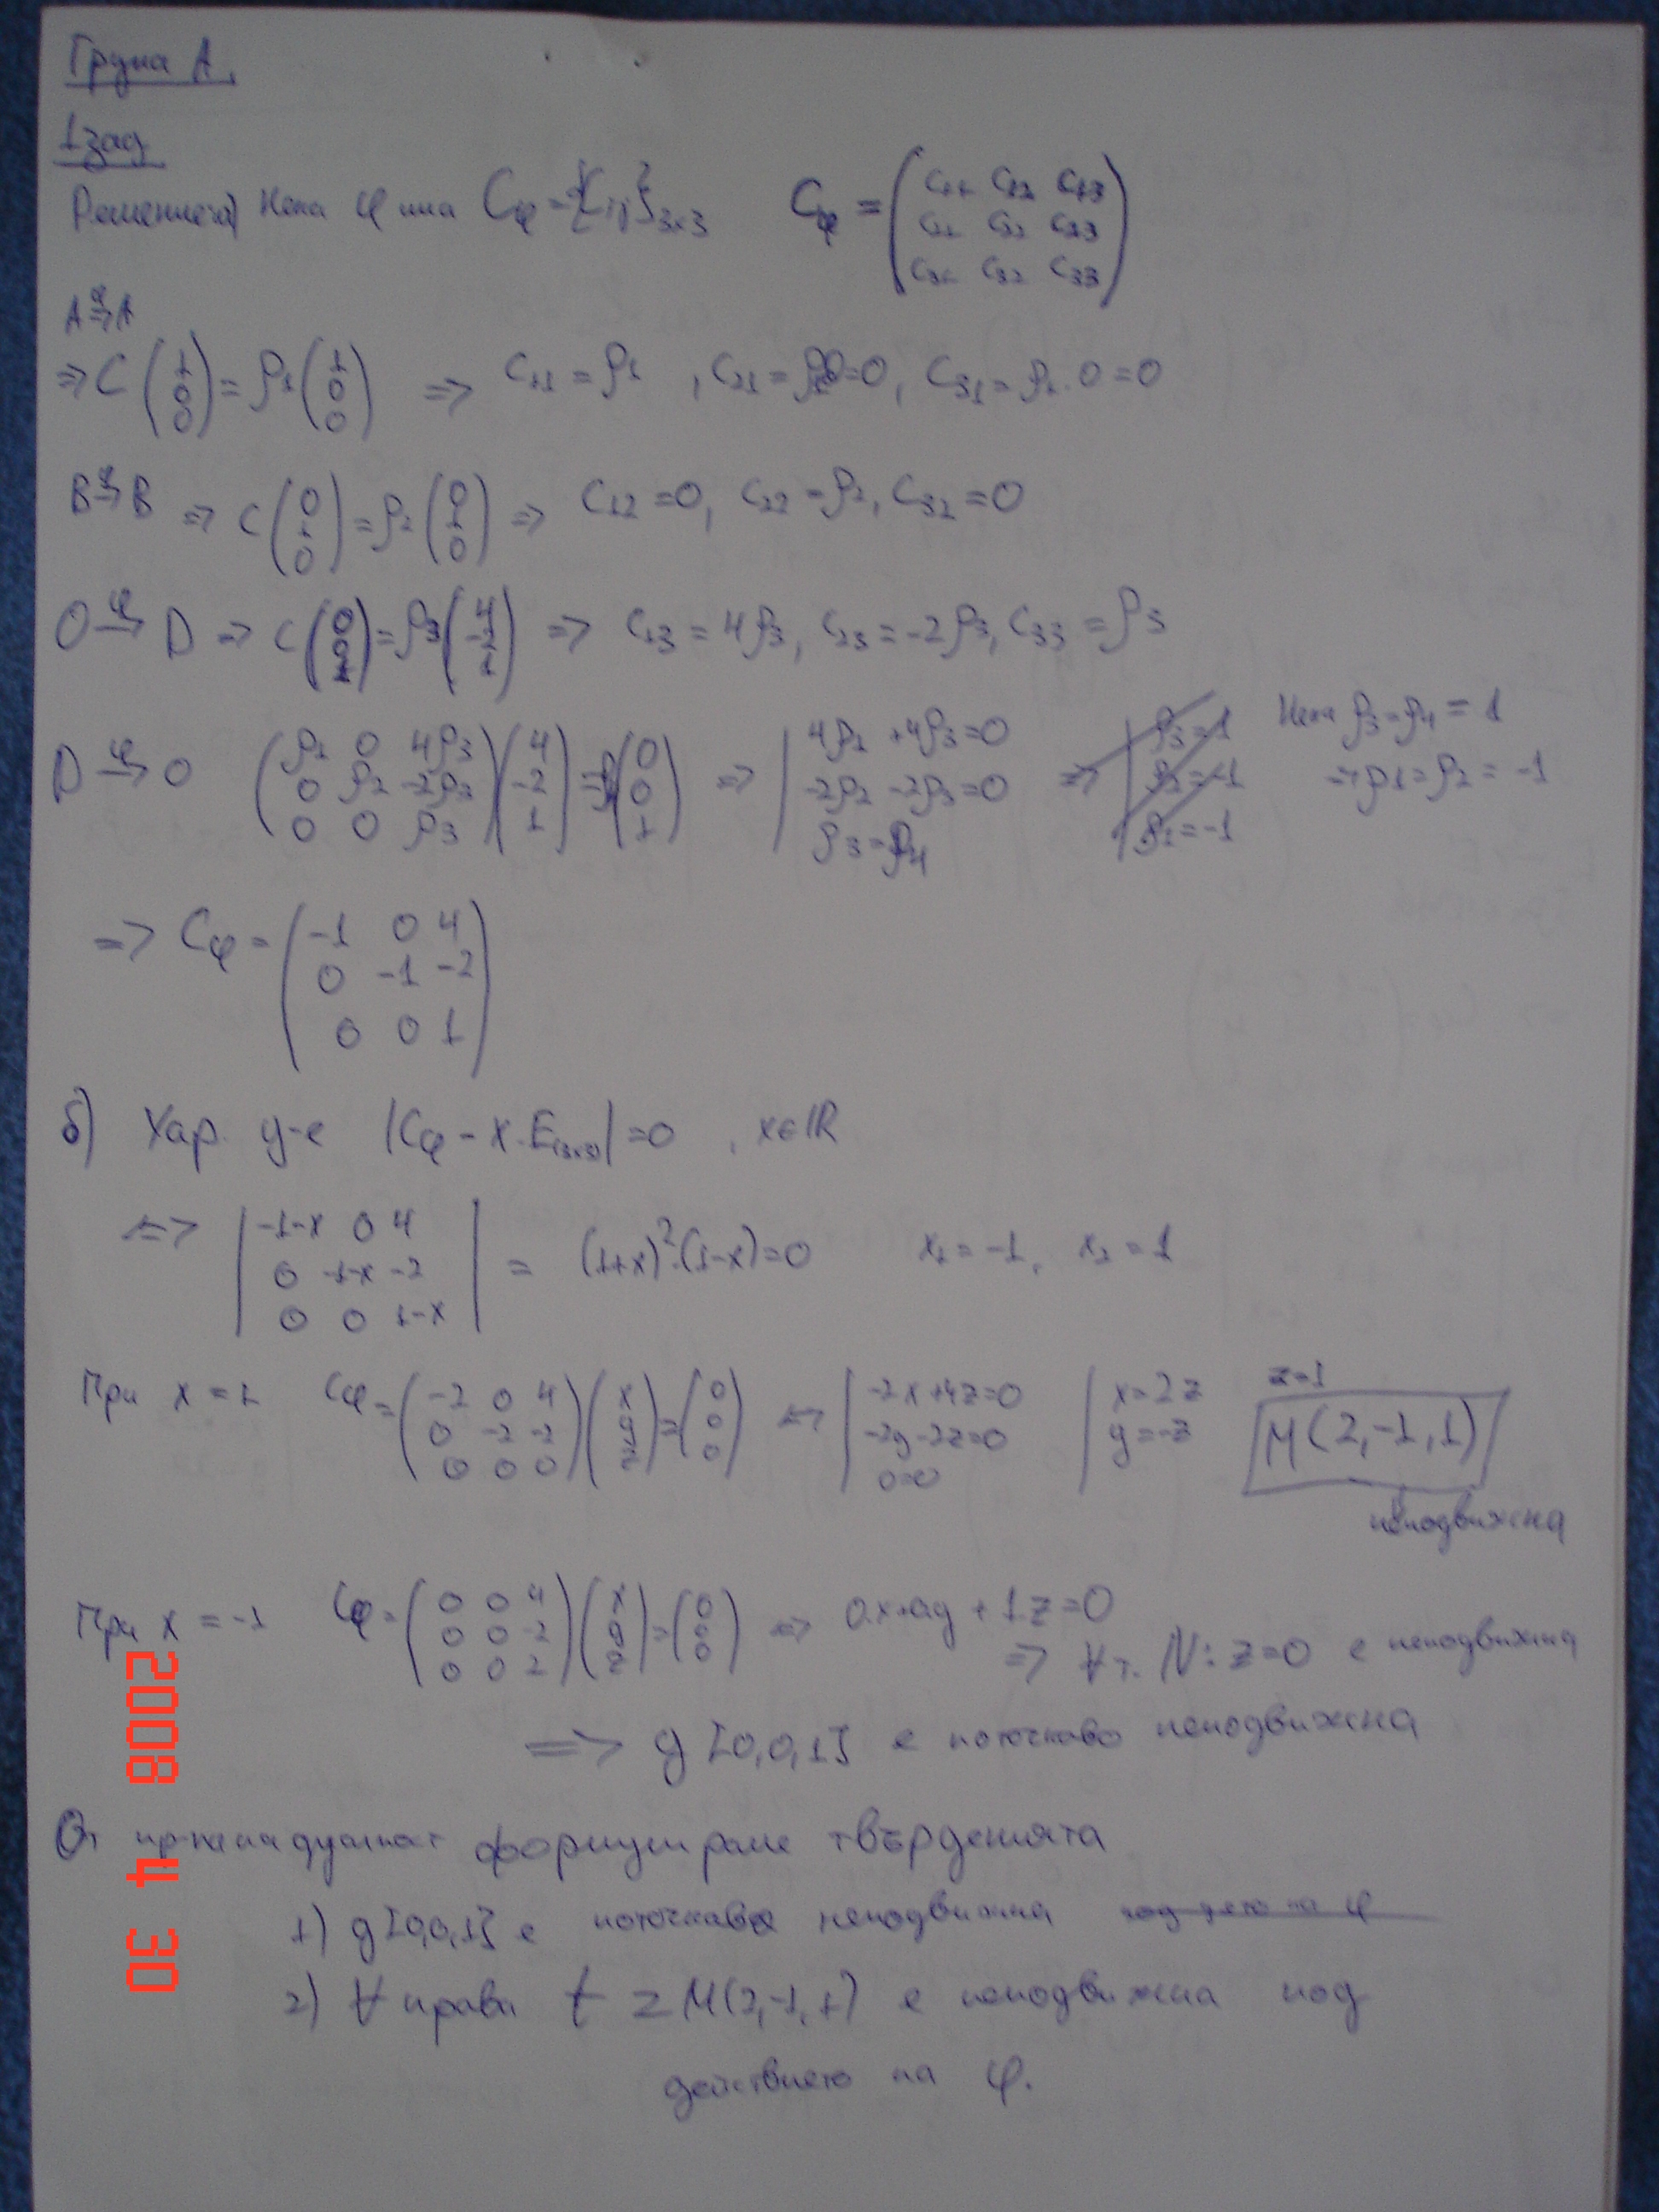 Група А.
1 зад
Решение: а) Нека φ има Cφ = {Cij}3x3   Cφ = (C11 C12 C13
C21 C22 C23
C31 C32 C33)
A →φ A
=> C (1 0 0) = ρ1 (1 0 0) => C11 = ρ1 , C21 = ρ1.0 = 0, C31 = ρ1.0 = 0
B →φ B => C (0 1 0) = ρ2 (0 1 0) => C12 = 0, C22 = ρ2, C32 = 0
O →φ D => C (0 0 1) = ρ3 (4 -2 1) => C13 = 4ρ3, C23 = -2ρ3, C33 = ρ3
D →φ O (ρ1 0 4ρ3 | 4ρ1 +4ρ3=0 ρ3=1 Нека ρ3=ρ4 = 1
0 ρ2 -2ρ3 -2ρ2 -2ρ3=0 => ρ2=-1 => ρ1=ρ2 = -1
0 0 ρ3) (4 -2 1) = ρ4 (0 0 1) => ρ3=ρ4 ρ1=-1
=> Cφ = (-1 0 4
0 -1 -2
0 0 1)
б) Хар. у-е |Cφ - x.E(3x3)| = 0 , x∈ℝ
<=> | -1-x 0 4
0 -1-x -2
0 0 1-x | = (1+x)².(1-x)=0 x1 = -1, x2 = 1
При x = 1 Cφ = (-2 0 4
0 -2 -2
0 0 0) (x y z) = (0 0 0) <=> | -2x+4z=0
-2y-2z=0
0=0 | x=2z
y=-z z=1
M(2,-1,1)
неподвижна
При x = -1 Cφ = (0 0 4
0 0 -2
0 0 2) (x y z) = (0 0 0) => 0.x+0.y + 1.z=0
=> ∀ т. N: z=0 е неподвижна
=> g[0,0,1] е поточково неподвижна
От пр-па на дуалност формулираме твърденията
1) g[0,0,1] е поточково неподвижна под д-ето на φ
2) ∀ права t z M(2,-1,1) е неподвижна под
действието на φ.
2008 4 30